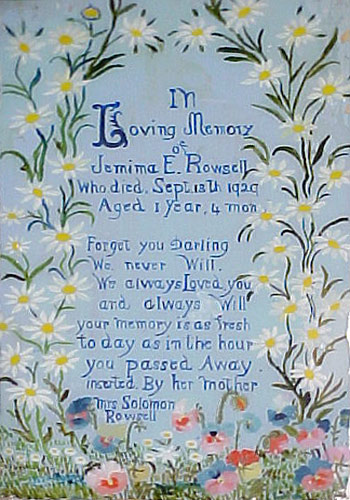 In
Loving Memory
of
Jemima E. Rowsell
Who died, Sept. 18th 1929
Aged 1 Year, 4 mon.
Forget you Darling
We never Will.
We always Loved you
and always Will
your memory is as fresh
to day as in the hour
you passed Away.
inserted By her mother
Mrs Solomon
Rowsell